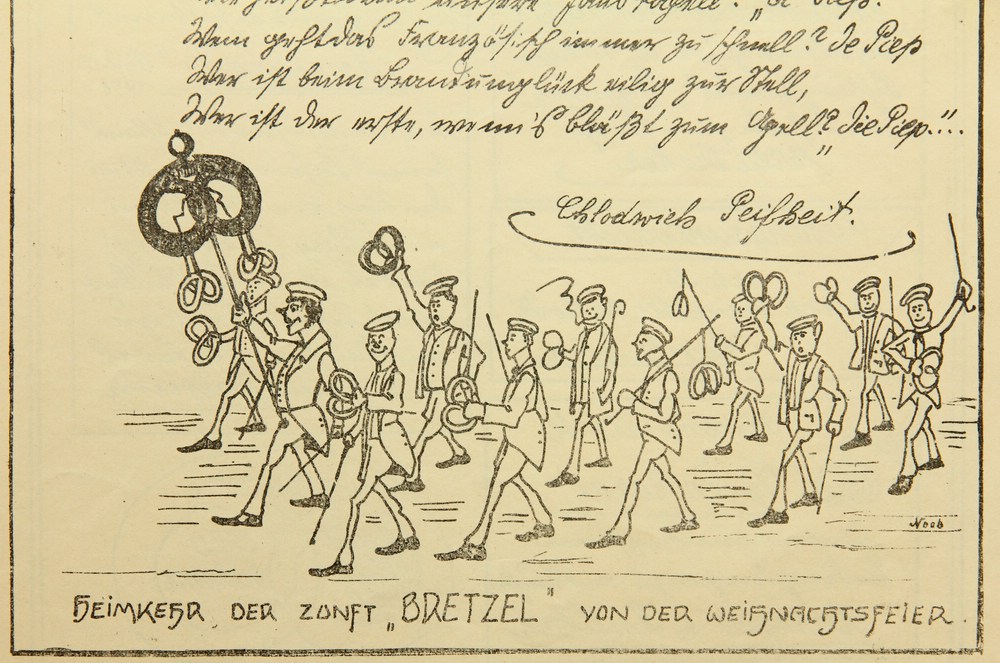 unsere
Wem geht das Französisch immer zu schnell? De Piep
Wer ist beim Brandunglück eilig zur Stell,
Wer ist der erste, wenn's bläßt zum Apell? Die Piep."..
Chlodwich Peifheit.
Noob
HEIMKEHR DER ZUNFT „BRETZEL" VON DER WEIHNACHTSFEIER.